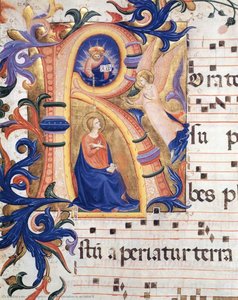 Rorate
su p
bes p
istū aperiatur terra